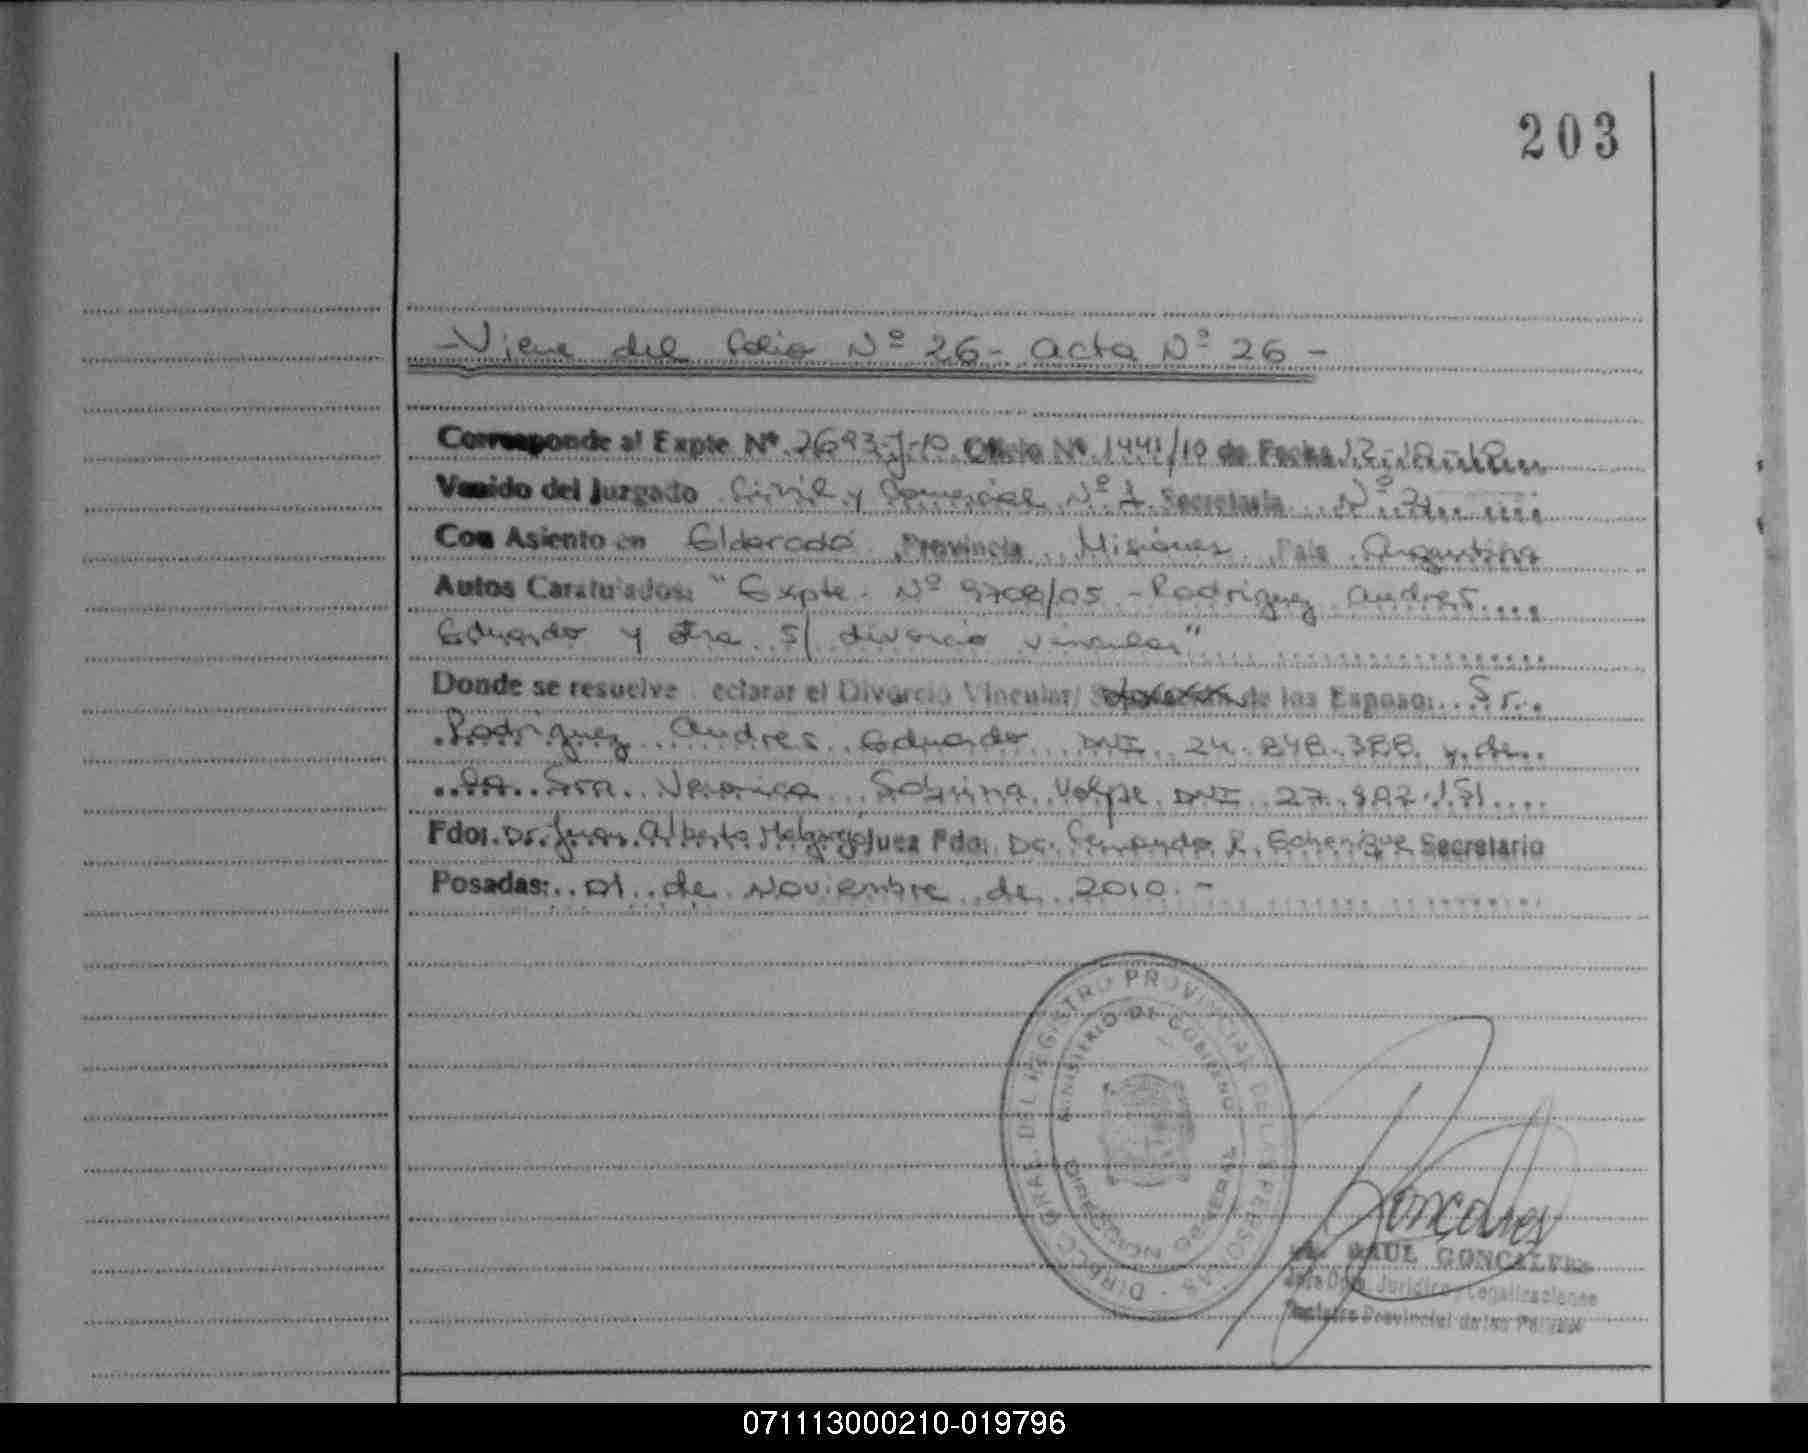 203
-Viene del folio Nº 26- acta Nº 26-
Corresponde al Expte Nº 2693-J-10 Oficio Nº 1441/10 de Fecha 12-10-10
Venido del Juzgado Civil y Comercial Nº 1 Secretaría Nº 2
Con Asiento en Eldorado Provincia Misiones País Argentina
Autos Caratulados: "Expte. Nº 9708/05 -Rodriguez Andres
Eduardo y otra S/ divorcio vincular"
Donde se resuelve eclarar el Divorcio Vincular/ de los Esposo: Sr.
Rodriguez Andres Eduardo DNI 24.848.388 y de
la Sra. Veronica Sabrina Volpe DNI 27.     .151
Fdo: Dr. Juan Alberto          Juez Fdo: Dr. Fernando R. Echenique Secretario
Posadas: 01 de Noviembre de 2010.-
DIRECC. GRAL. DEL REGISTRO PROVINCIAL DE LAS PERSONAS
MINISTERIO DE GOBIERNO
Goncalves
RAUL GONCALVES
Jefe Dpto. Jurídico y Legalizaciones
Registro Provincial de las Personas
071113000210-019796